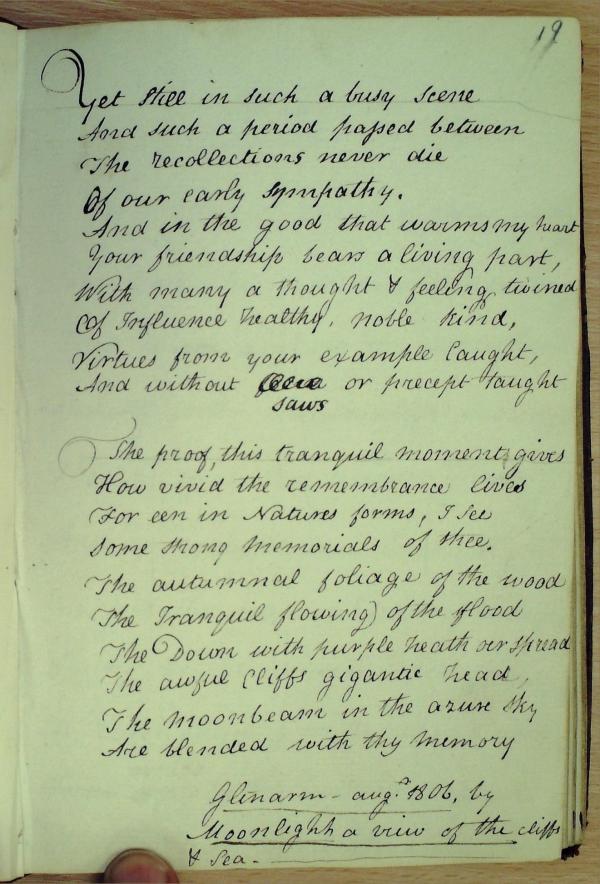 19
Yet still in such a busy scene
And such a period passed between
The recollections never die
Of our early sympathy.
And in the good that warms my heart
Your friendship bears a living part,
With many a thought & feeling twined
Of Influence healthy, noble kind,
Virtues from your example caught,
And without or precept taught
saws
The proof, this tranquil moment gives
How vivid the remembrance lives
For een in Natures forms, I see
Some strong memorials of thee.
The autumnal foliage of the wood
The Tranquil flowing of the flood
The Down with purple heath oer spread
The awful Cliffs gigantic head,
The moonbeam in the azure sky
Are blended with thy memory
Glenarm - augst 1806, by
Moonlight a view of the cliffs
& Sea -